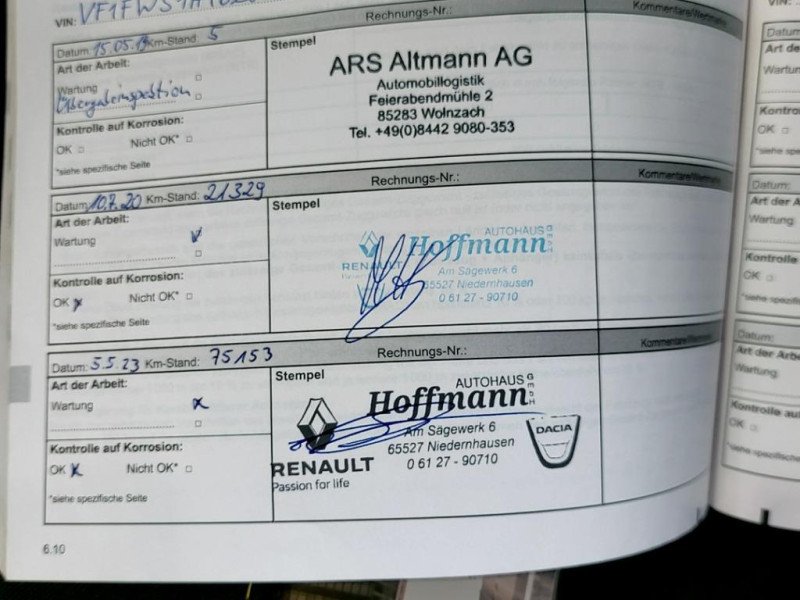 VIN:
Rechnungs-Nr.:
Kommentare/Wertmarke
Datum: 15.05.19 Km-Stand: 5
Stempel
Art der Arbeit:
Wartung
Übergabeinspektion
Kontrolle auf Korrosion:
OK Nicht OK*
*siehe spezifische Seite
ARS Altmann AG
Automobillogistik
Feierabendmühle 2
85283 Wolnzach
Tel. +49(0)8442 9080-353
Rechnungs-Nr.:
Kommentare/Wertmarke
Datum: 10.7.20 Km-Stand: 21329
Stempel
Art der Arbeit:
Wartung
Kontrolle auf Korrosion:
OK x Nicht OK*
*siehe spezifische Seite
AUTOHAUS
Hoffmann GmbH
RENAULT
Am Sägewerk 6
65527 Niedernhausen
0 61 27 - 90710
Rechnungs-Nr.:
Kommentare/Wertmarke
Datum: 5.5.23 Km-Stand: 75153
Stempel
Art der Arbeit:
Wartung x
Kontrolle auf Korrosion:
OK x Nicht OK*
*siehe spezifische Seite
AUTOHAUS
Hoffmann GmbH
Am Sägewerk 6
65527 Niedernhausen
0 61 27 - 90710
RENAULT
Passion for life
DACIA
6.10
Datum:
Art de
Wartung
Kontro
OK
Datum:
Art der A
Wartung
Kontrolle
OK
Datum:
Art der Arb
Wartung
Kontrolle a
OK